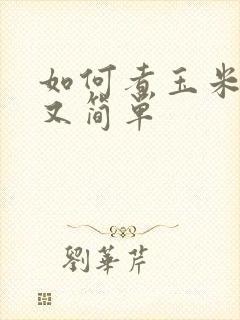 如何煮玉米
又简单
劉華芹